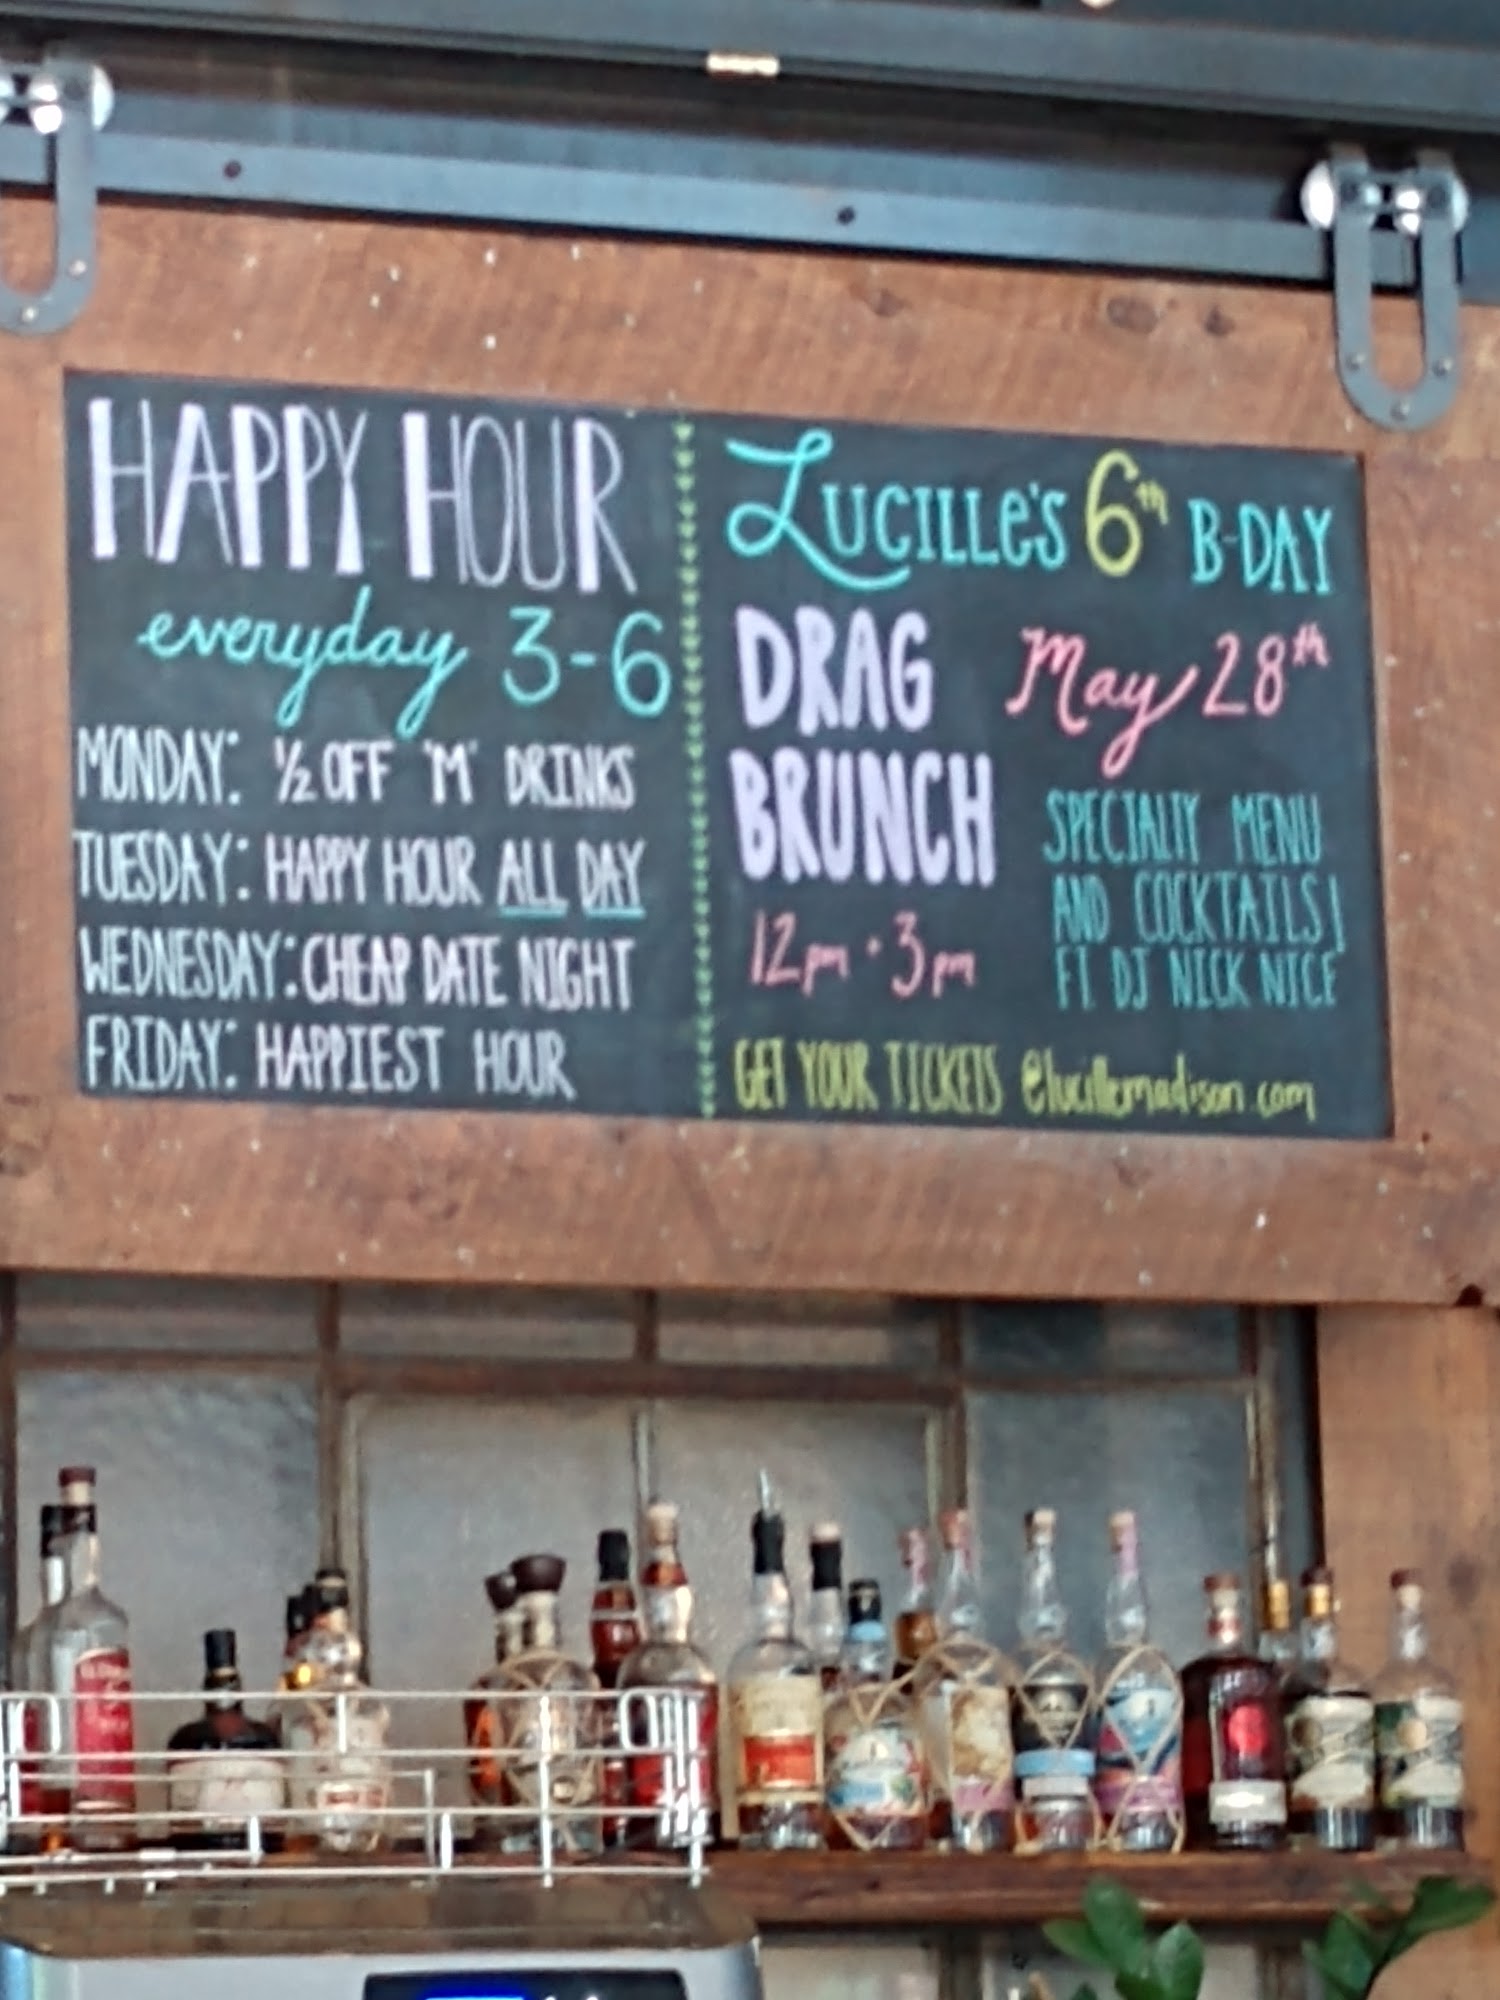 HAPPY HOUR
everyday 3-6
MONDAY: ½ OFF "M" DRINKS
TUESDAY: HAPPY HOUR ALL DAY
WEDNESDAY: CHEAP DATE NIGHT
FRIDAY: HAPPIEST HOUR
LUCILLe's 6th B-DAY
DRAG
BRUNCH
12pm - 3pm
May 28th
SPECIALTY MENU
AND COCKTAILS!
FT. DJ NICK NICE
GET YOUR TICKETS @lucillemadison.com